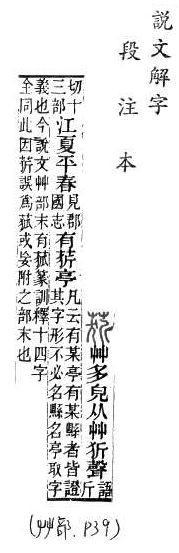 説文解字
段注本
䓄 艸多皃从艸㹞聲 語斤
切十三部 江夏平春 見郡國志 有䓄亭 凡云有某亭有某縣者皆證其字形不必名縣名亭取字
義也今說文艸部末有篆訓釋十四字
全同此因䓄誤爲或妄附之部末也
(艸部. P39)